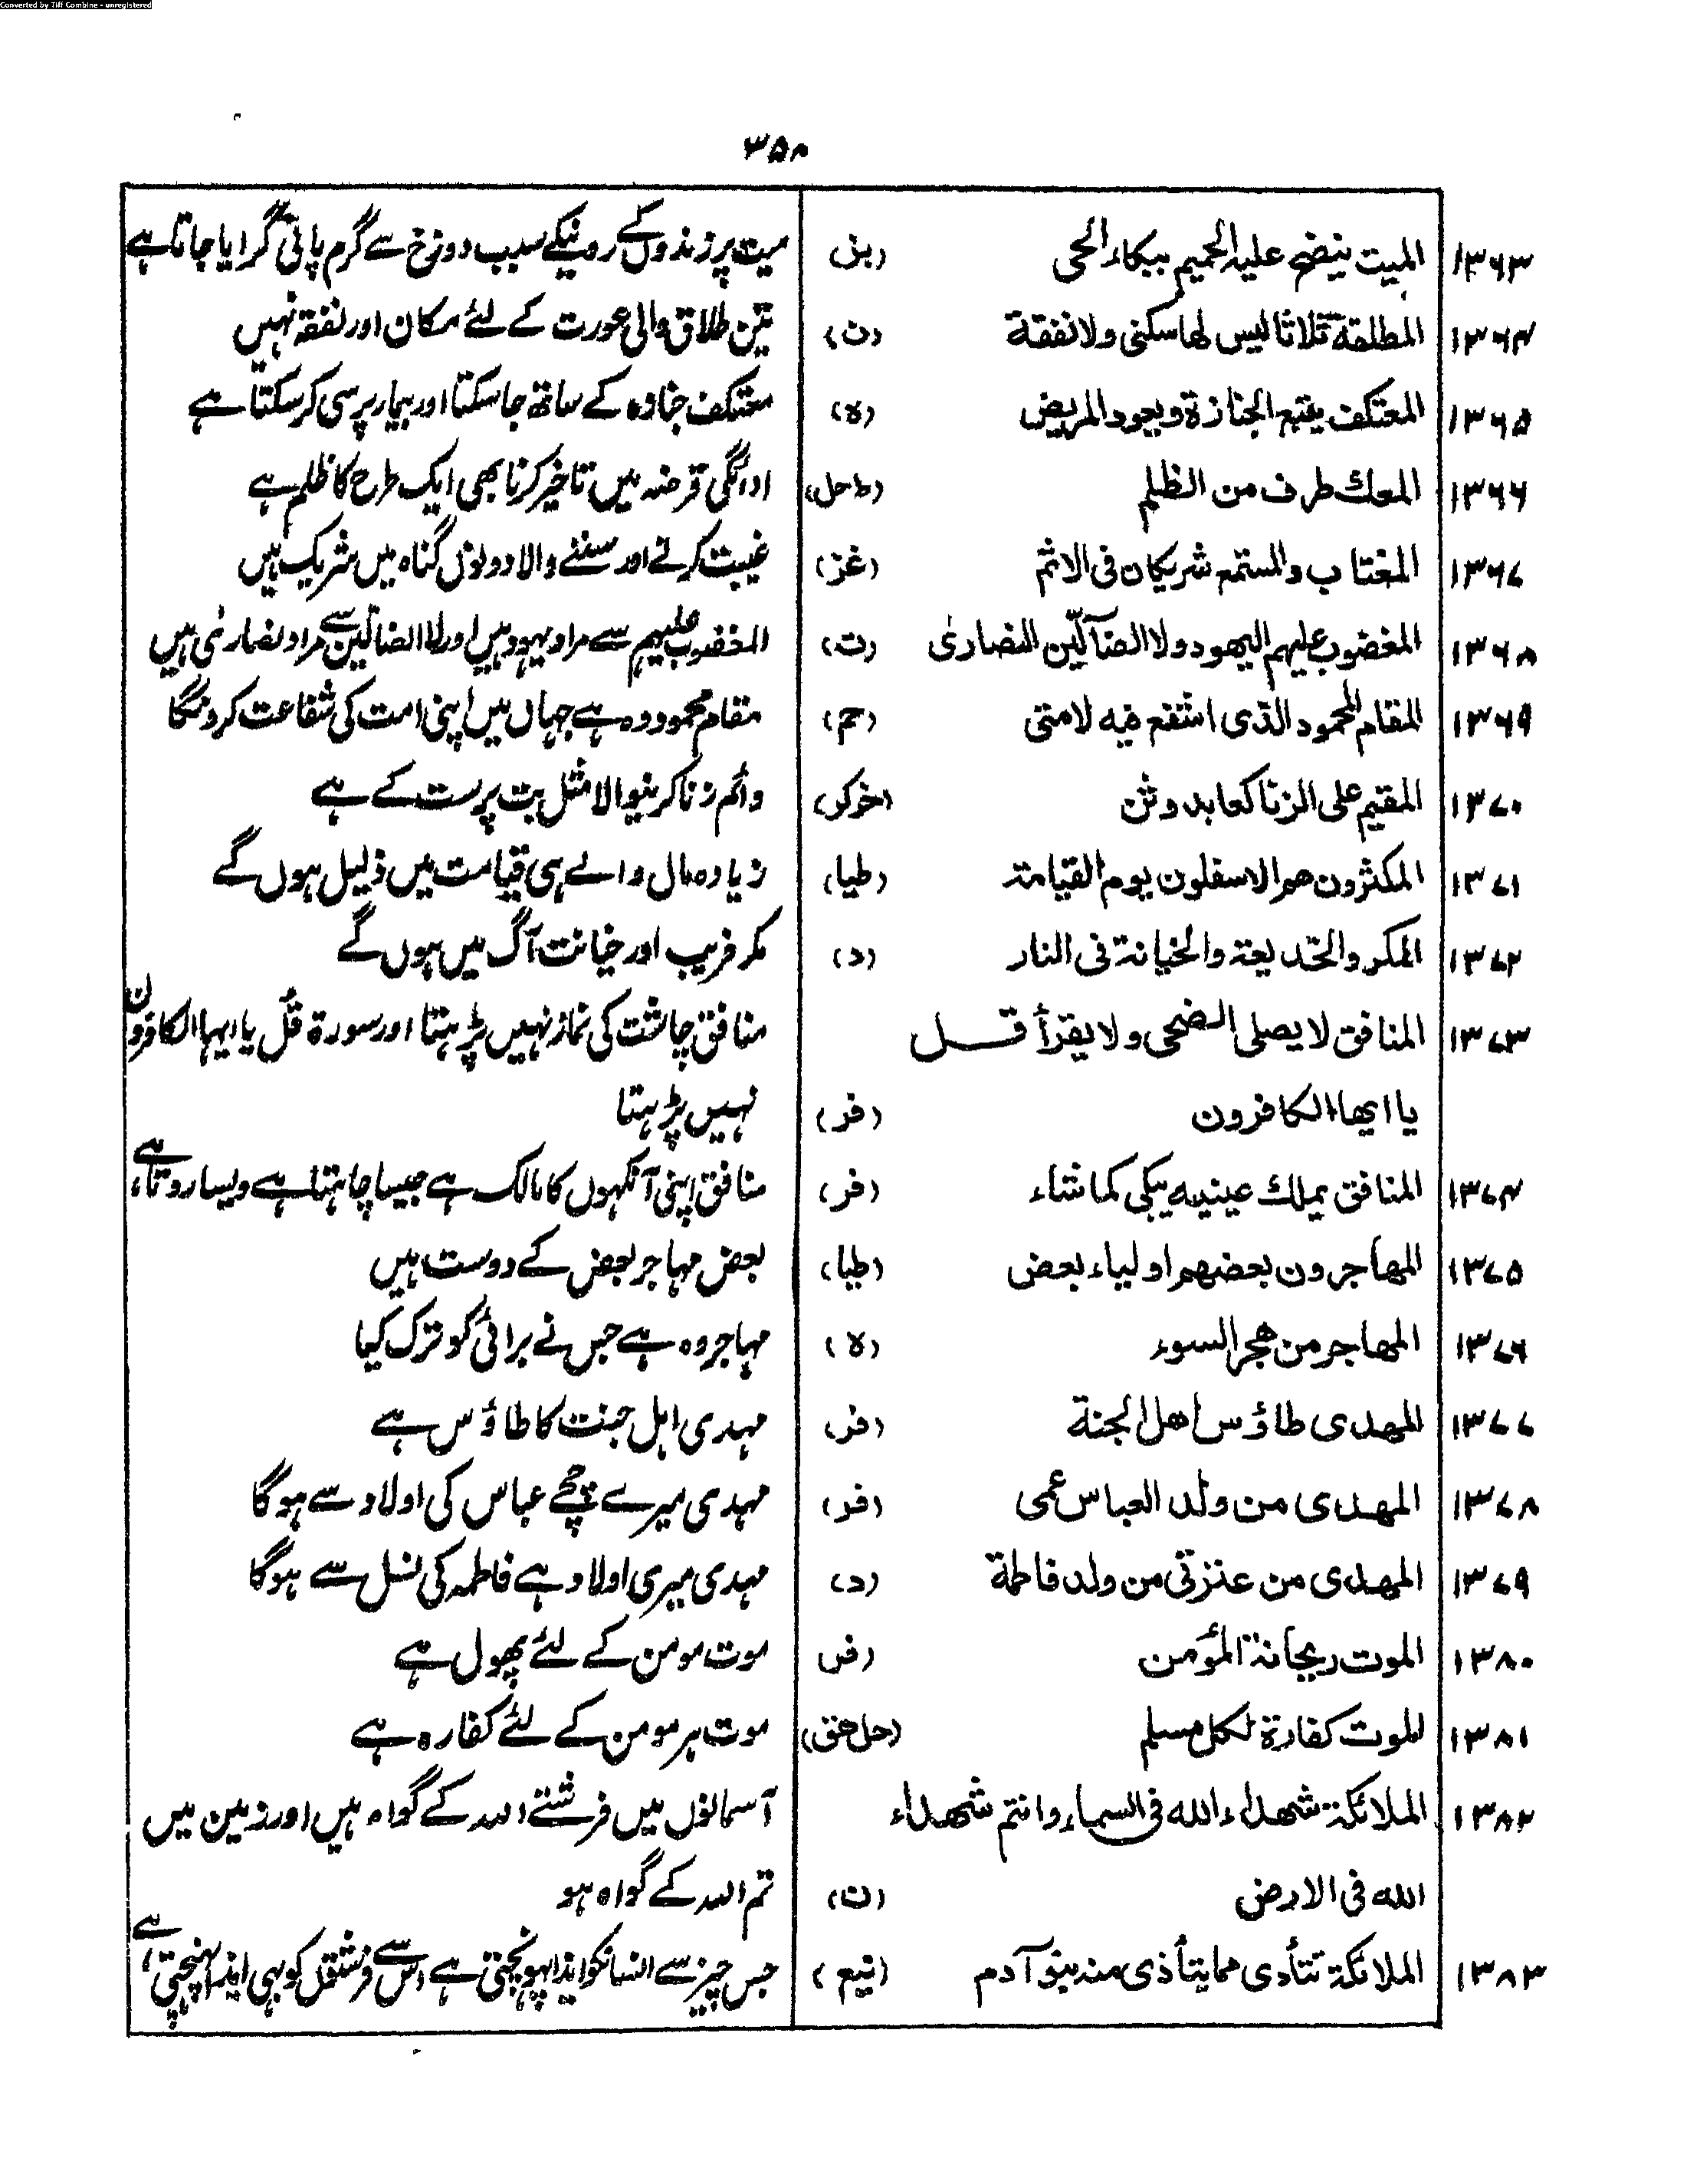 Converted by Tiff Combine - unregistered
۳۵۸
۱۳۶۳ الميت ينضح عليه الحميم ببكاء الحى (بز) میت پر زندوں کے رونیکے سبب دوزخ سے گرم پانی گرایا جاتا ہے
۱۳۶۴ المطلقة ثلاثا ليس لها سكنى ولا نفقة (ن) تین طلاق والی عورت کے لئے مکان اور نفقہ نہیں
۱۳۶۵ المعتكف يتبع الجنازة ويعود المريض (ه) معتکف جنازہ کے ساتھ جا سکتا اور بیمار پرسی کر سکتا ہے
۱۳۶۶ المعك طرف من الظلم (طحل) ادائگی قرضہ میں تاخیر کرنا بھی ایک طرح کا ظلم ہے
۱۳۶۷ المغتاب والمستمع شريكان فى الاثم (غز) غیبت کرنے اور سننے والا دونوں گناہ میں شریک ہیں
۱۳۶۸ المغضوب عليهم اليهود ولا الضآلّين النصارىٰ (ت) المغضوب علیہم سے مراد یہود ہیں اور لا الضالین سے مراد نصاریٰ ہیں
۱۳۶۹ المقام المحمود الذى اشفع فيه لامتى (حم) مقام محمود وہ ہے جہاں میں اپنی امت کی شفاعت کرونگا
۱۳۷۰ المقيم على الزنا كعابد وثن (خركر) دائم زنا کرنیوالا مثل بت پرست کے ہے
۱۳۷۱ المكثرون هم الاسفلون يوم القيامة (طيا) زیادہ مال والے ہی قیامت میں ذلیل ہوں گے
۱۳۷۲ المكر والخديعة والخيانة فى النار (د) مکر فریب اور خیانت آگ میں ہوں گے
۱۳۷۳ المنافق لا يصلى الضحى ولا يقرأ قل منافق چاشت کی نماز نہیں پڑہتا اور سورۃ قُل یا ایہا الکافرون
يا ايها الكافرون (فر) نہیں پڑہتا
۱۳۷۴ المنافق يملك عينيه يبكى كما شاء (فر) منافق اپنی آنکھوں کا مالک ہے جیسا چاہتا ہے ویسا روتا ہے،
۱۳۷۵ المهاجرون بعضهم اولياء بعض (طيا) بعض مہاجر بعض کے دوست ہیں
۱۳۷۶ المهاجر من هجر السوء (ه) مہاجر وہ ہے جس نے برائی کو ترک کیا
۱۳۷۷ المهدى طاؤس اهل الجنة (فر) مہدی اہل جنت کا طاؤس ہے
۱۳۷۸ المهدى من ولد العباس عمى (فر) مہدی میرے چچے عباس کی اولاد سے ہوگا
۱۳۷۹ المهدى من عترتى من ولد فاطمة (د) مہدی میری اولاد ہے فاطمہ کی نسل سے ہوگا
۱۳۸۰ الموت ريحانة المؤمن (فر) موت مومن کے لئے پھول ہے
۱۳۸۱ الموت كفارة لكل مسلم (حل هق) موت ہر مومن کے لئے کفارہ ہے
۱۳۸۲ الملائكة شهداء الله فى السماء وانتم شهداء آسمانوں میں فرشتے اللہ کے گواہ ہیں اور زمین میں
الله فى الارض (ن) تم اللہ کے گواہ ہو
۱۳۸۳ الملائكة تتأذى مما يتأذى منه بنو آدم جس چیز سے انسانکو ایذا پہونچتی ہے اس سے فرشتوں کو بھی ایذا پہنچتی ہے،